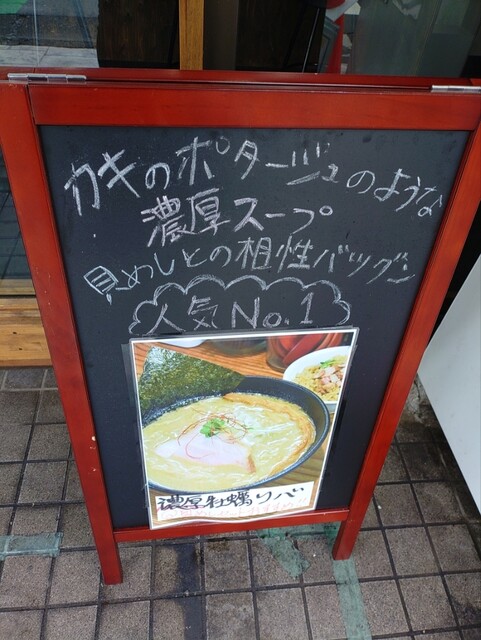 カキのポタージュのような
濃厚スープ
貝めしとの相性バツグン
人気No.1
濃厚牡蠣そば